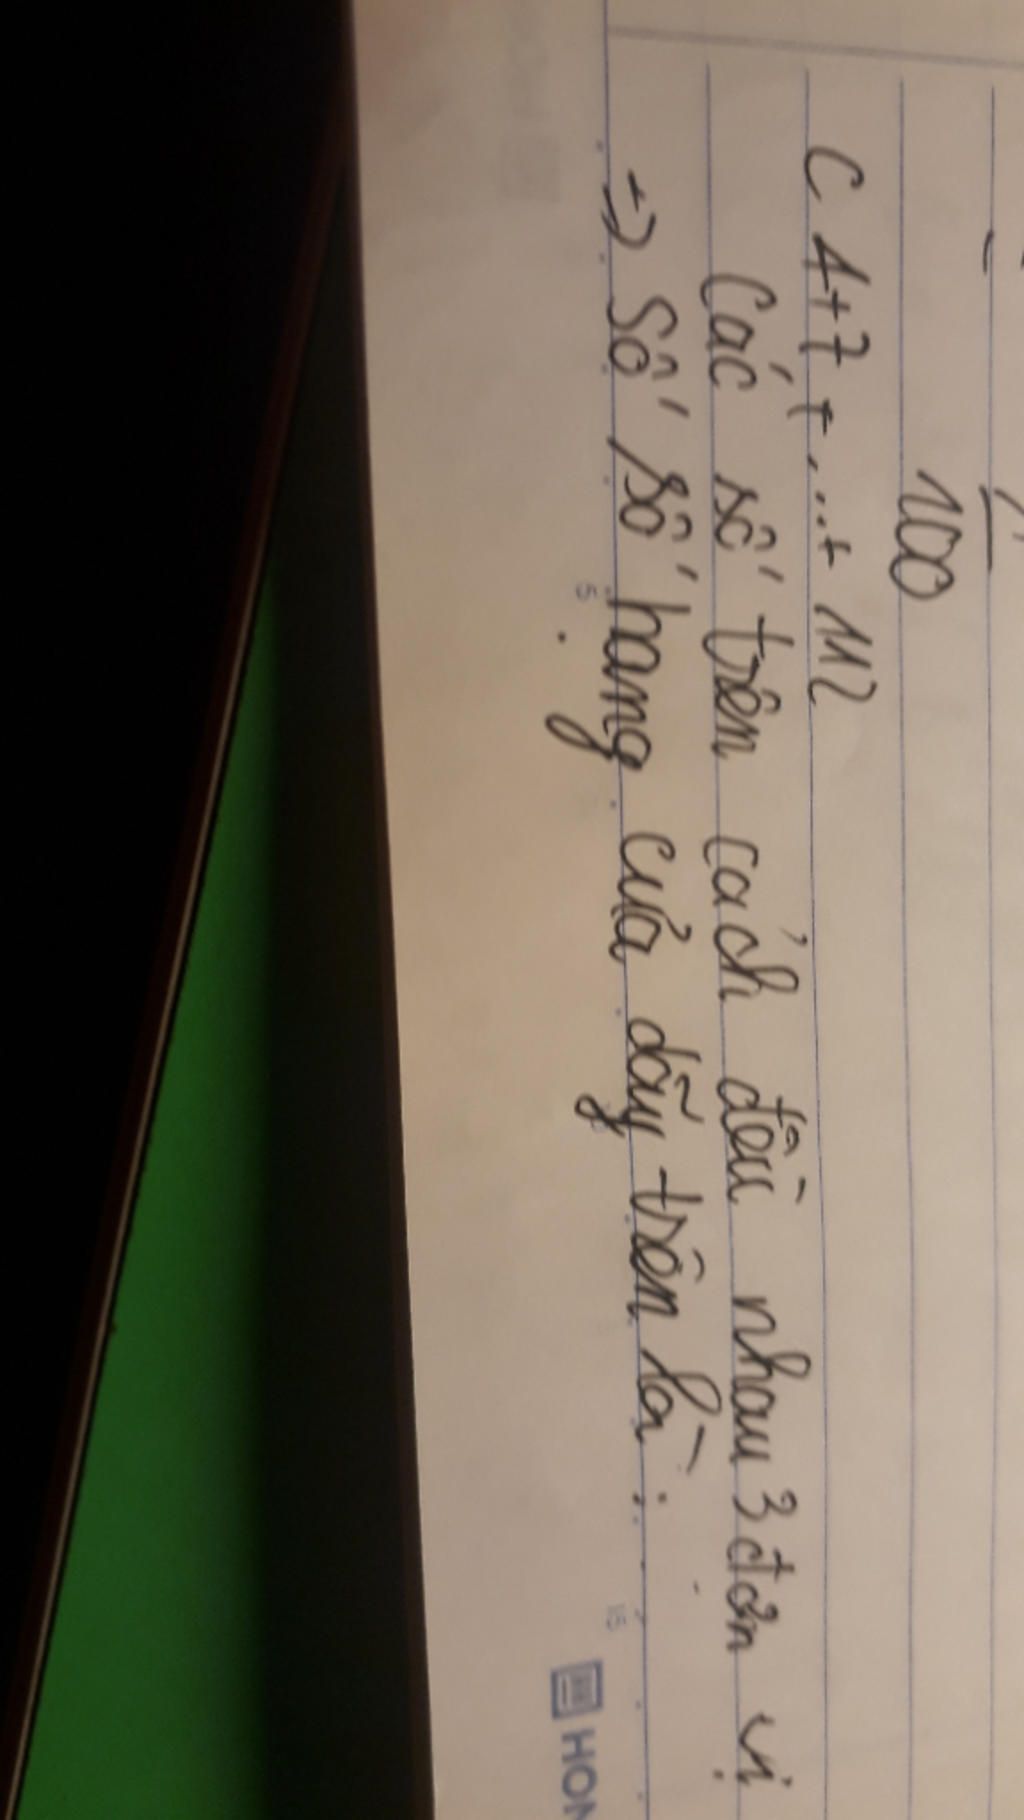 100
C 4+7+...+ 112
Các số trên cách đều nhau 3 đơn vị
=> Số số hang của dãy trên là :
5
15
HON